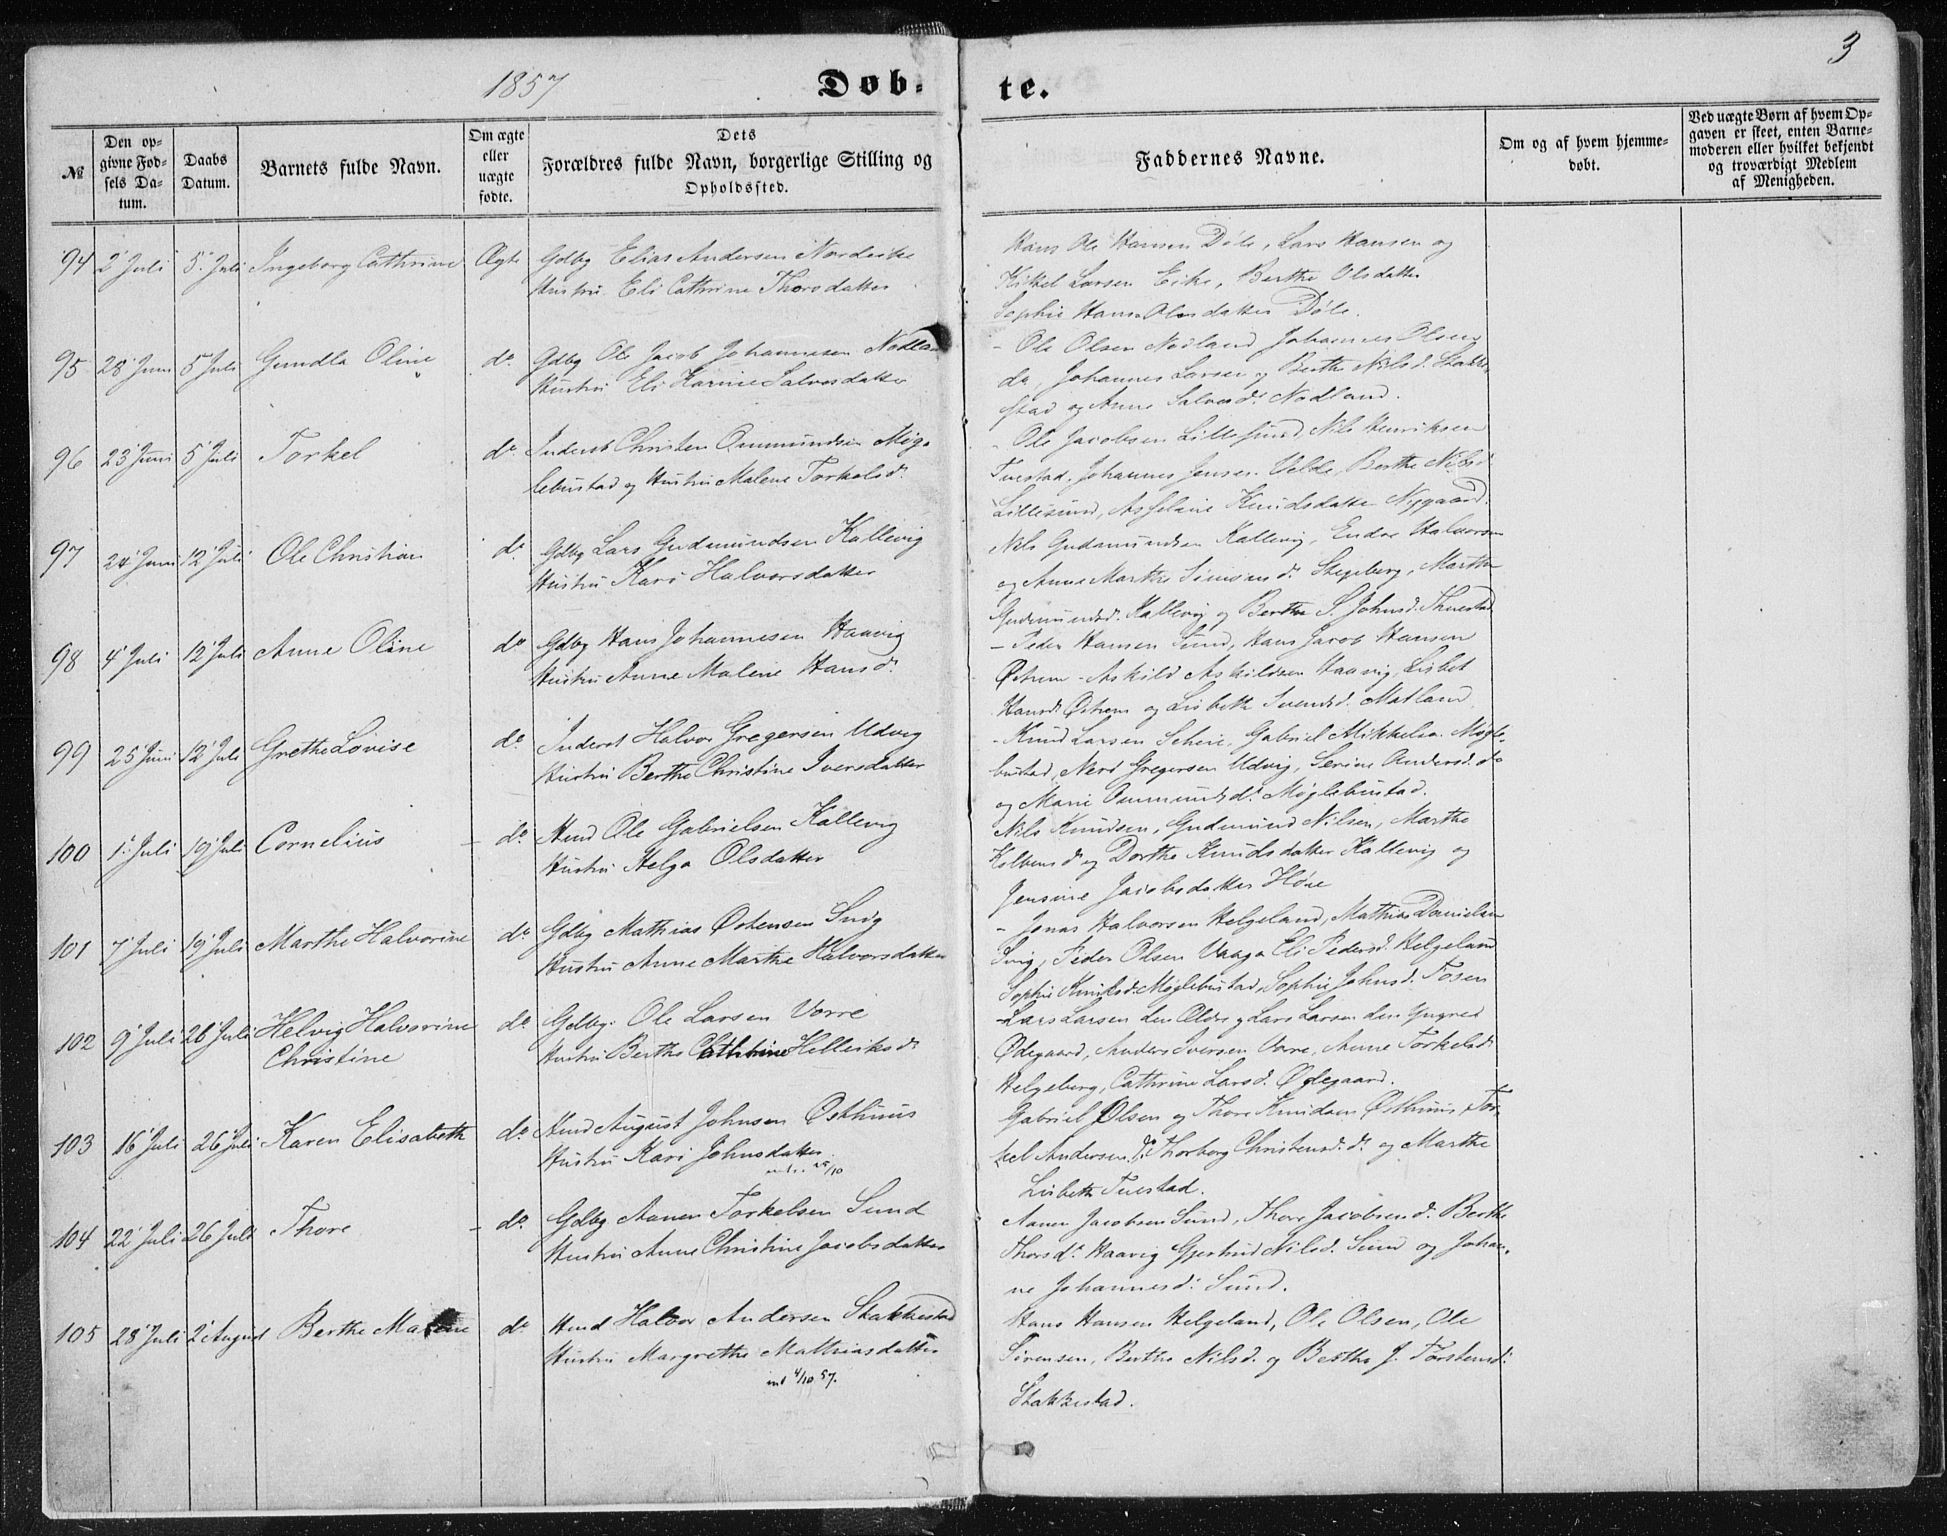 1857 Døb- te. 3
№
Den op-
givne Fød-
sels Da-
tum.
Daabs
Datum.
Barnets fulde Navn.
Om ægte
eller
uægte
fødte.
Dets
Forældres fulde Navn, borgerlige Stilling og
Opholdssted.
Faddernes Navne.
Om og af hvem hjemme-
døbt.
Ved uægte Børn af hvem Op-
gaven er skeet, enten Barne-
moderen eller hvilket bekjendt
og troværdigt Medlem
af Menigheden.
94 2' Juli 5' Juli Ingeborg Cathrine Ægte Gdbg Elias Andersen
Hustru Eli Cathrine Thorsdatter
Hans Ole Hansen Døle, Lars Hansen og
Larsen Eike, Berthe Olsdatter
Sophie Hans Olsdatter Døle.
95 28' Juni 5' Juli Gundla Oline do Gdbg Ole Jacob Johannesen
Hustru Eli Karine Salvesdatter
- Ole Olsen Nodland Johannes Olsen
do, Johannes Larsen og Berthe Nilsd. Stakke-
stad og Anne Salvesd. Nodland.
96 23' Juni 5' Juli Torkel do Inderst Christen Ommundsen Møg-
lebustad og Hustru Malene Torkelsd.
- Ole Jacobsen Lillesund, Nils Henriksen
Tuestad, Johannes Jensen Velde, Berthe Nilsd.
Lillesund, Knudsdatter Nygaard.
97 24' Juni 12' Juli Ole Christian do Gdbg Lars Gudmundsen Kallevig
Hustru Kari Halvorsdatter
Nils Gudmundsen Kallevig, Endre Halvorsen
og Anne Marthe Simonsd. Stegeberg, Marthe
Gudmundsd. Kallevig og Berthe S. Johnsd. Thuestad
98 4' Juli 12' Juli Anne Oline do Gdbg Hans Johannesen Haavig
Hustru Anne Malene Hansd.
- Peder Hansen Sund, Hans Jacob Hansen
Østrem - Askild Askildsen Haavig, Lisbet
Hansd. Østrem og Lisbeth Svendsd. Matland
99 25' Juni 12' Juli Grethe Lovise do Inderst Halvor Gregersen Udvig
Hustru Berthe Christine Iversdatter
- Knud Larsen Scheie, Gabriel Mikkelsen Møgle-
bustad, Gregersen Udvig, Serine Andersd. do
og Marie Ommundsd. Møglebustad.
100 1' Juli 19' Juli Cornelius - do. Hmd Ole Gabrielsen Kallevig
Hustru Helga Olsdatter
Nils Knudsen, Gudmund Nilsen, Marthe
og Dorthe Knudsdatter Kallevig og
Jensine Jacobsdatter
101 7' Juli 19' Juli Marthe Halvorine do Gdbg Mathias Østensen Snig
Hustru Anne Marthe Halvorsdatter
- Jonas Halvorsen Helgeland, Mathias Danielsen
Snig, Peder Olsen Vaaga Eli Pedersd. Helgeland
Sophie Knudsd. Møglebustad, Sophie Johnsd. Fosen
102 9' Juli 26' Juli Helvig Halvorine do Gdbg. Ole Larsen Vorre
Christine Hustru Berthe Cathrine Helleiksd.
- Lars Larsen den Ældre og Lars Larsen den Yngre
Ødegaard, Anders Iversen Vorre, Anne Torkelsd.
Helgeberg, Cathrine Larsd. Ødegaard.
103 16' Juli 26' Juli Karen Elisabeth do. Hmd August Johnsen Østhuus
Hustru Kari Johnsdatter
Gabriel Olsen og Thore Knudsen Østhuus, Tor-
kel Andersen do Thorborg Christensd. do og Marthe
Lisbeth Tuestad.
104 22' Juli 26' Juli Thore - do. Gdbg Aanen Torkelsen Sund
Hustru Anne Christine Jacobsdatter
Aanen Jacobsen Sund, Thore Jacobsen do. Berthe
Thorsd. Haavig Gjertrud Nilsd. Sund og Johan-
ne Johannesd. Sund.
105 28' Juli 2' August Berthe Malene do. Hmd Halvor Andersen Stakkestad
Hustru Margrethe Mathiasdatter
ind 4/10 57.
Hans Hansen Helgeland, Ole Olsen, Ole
Sørensen, Berthe Nilsd. og Berthe J. Torstensd.
Stakkestad.